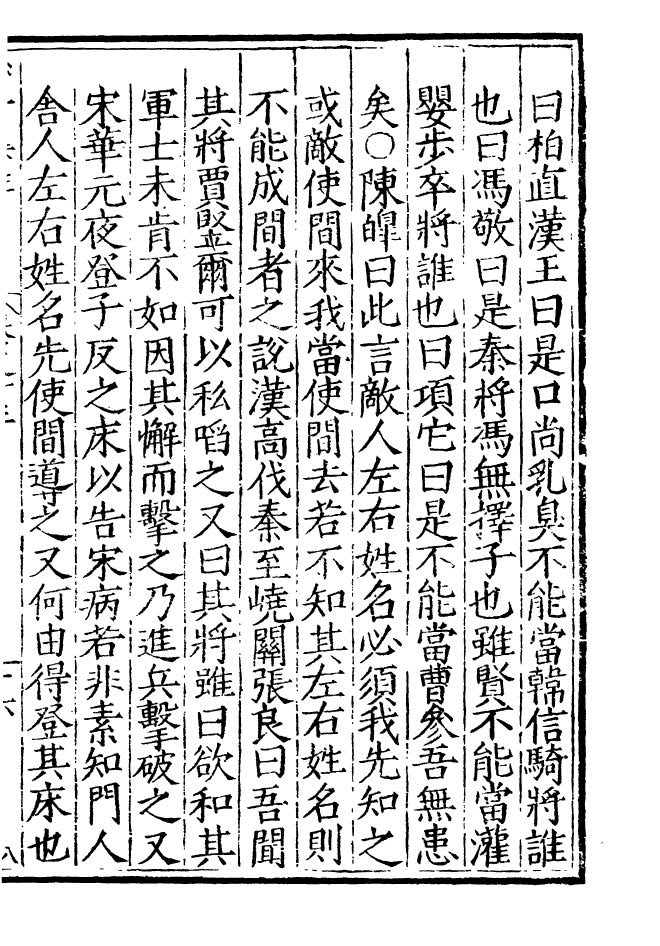 曰柏直漢王曰是口尚乳臭不能當韓信騎將誰
也曰馮敬曰是秦將馮無擇子也雖賢不能當灌
嬰步卒將誰也曰項它曰是不能當曹參吾無患
矣○陳皥曰此言敵人左右姓名必須我先知之
或敵使間來我當使間去若不知其左右姓名則
不能成間者之說漢高伐秦至嶢關張良曰吾聞
其將賈豎爾可以私啗之又曰其將雖曰欲和其
軍士未肯不如因其懈而擊之乃進兵擊破之又
宋華元夜登子反之床以告宋病若非素知門人
舍人左右姓名先使間導之又何由得登其床也